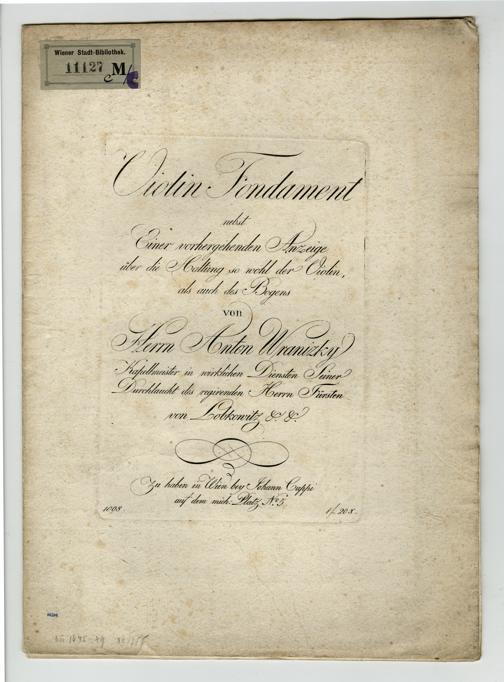 Wiener Stadt-Bibliothek.
11127 M/c
c
Violin Fondament
nebst
Einer vorhergehenden Anzeige
über die Haltung so wohl der Violin,
als auch des Bogens
von
Herrn Anton Wranizky
Kapellmeister in wirklichen Diensten Seiner
Durchlaucht des regirenden Herrn Fürsten
von Lobkowitz &. &.
Zu haben in Wien bey Johann Cappi
auf dem mich. Platz No. 5.
1008 1f. 20 x.